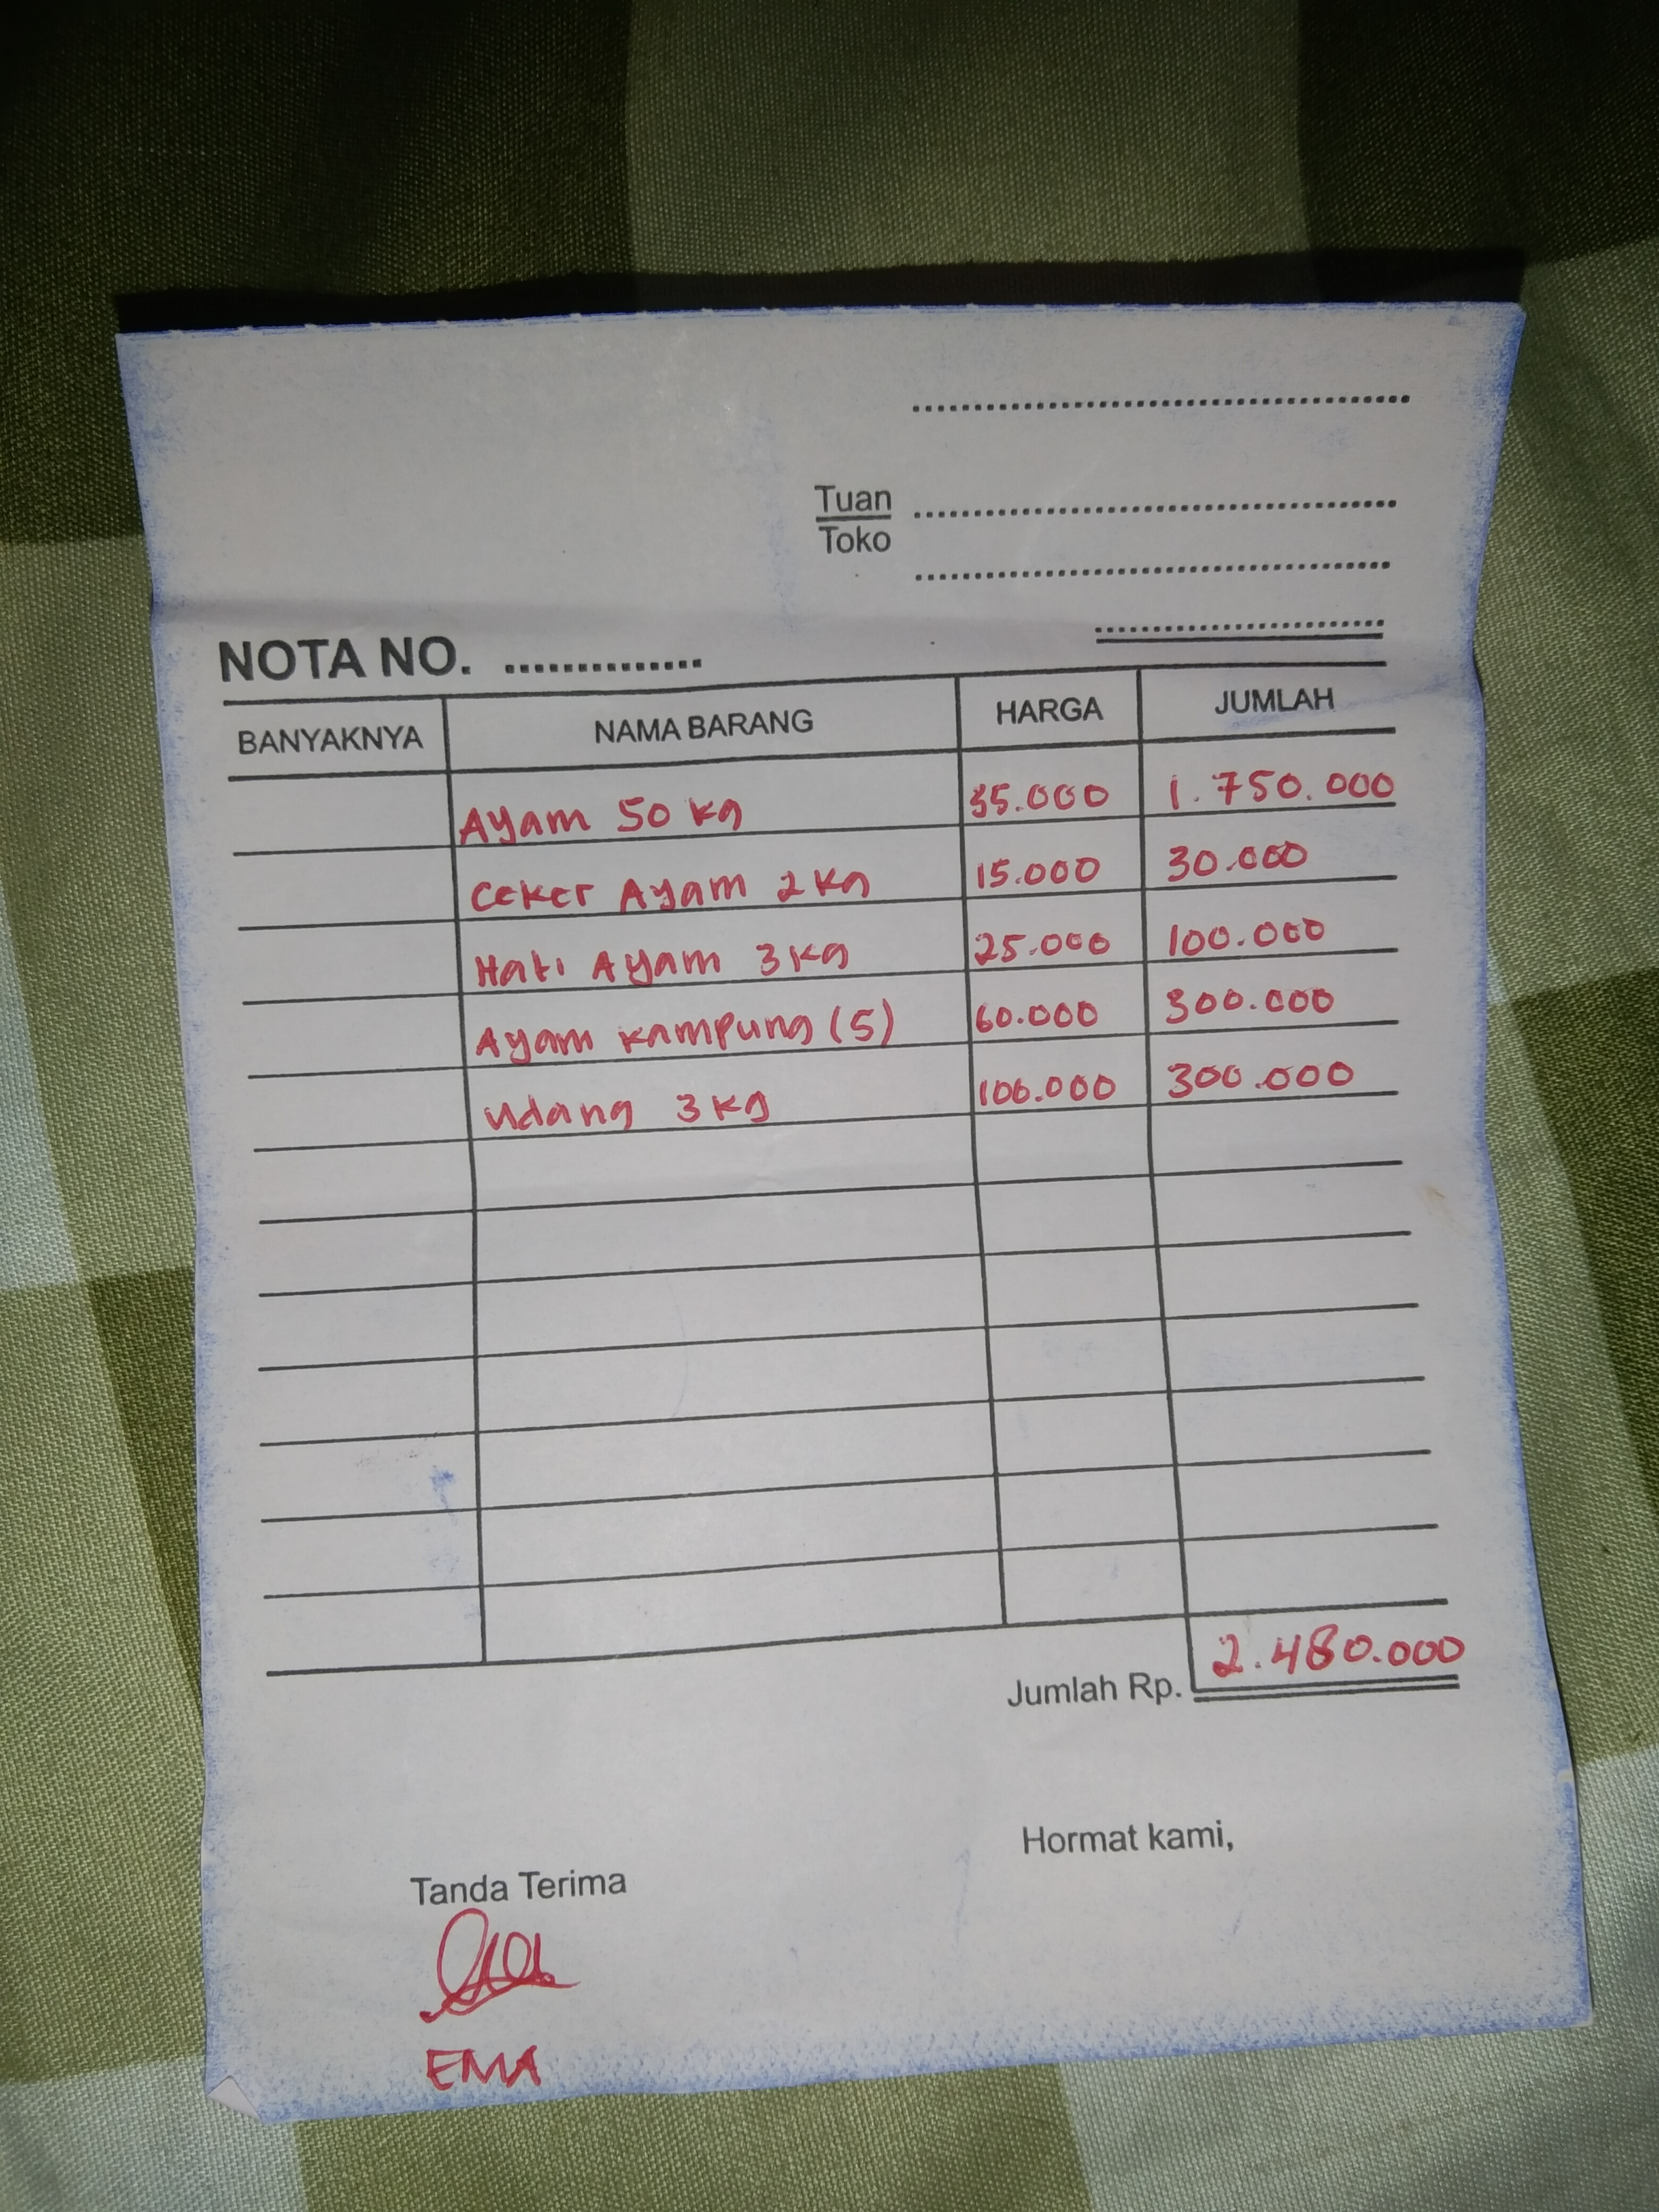 Tuan
Toko
NOTA NO. ..............
BANYAKNYA NAMA BARANG HARGA JUMLAH
Ayam 50 kg 35.000 1.750.000
Ceker Ayam 2 kg 15.000 30.000
Hati Ayam 3 kg 25.000 100.000
Ayam kampung (5) 60.000 300.000
Udang 3 kg 100.000 300.000
Jumlah Rp. 2.480.000
Hormat kami,
Tanda Terima
EMA